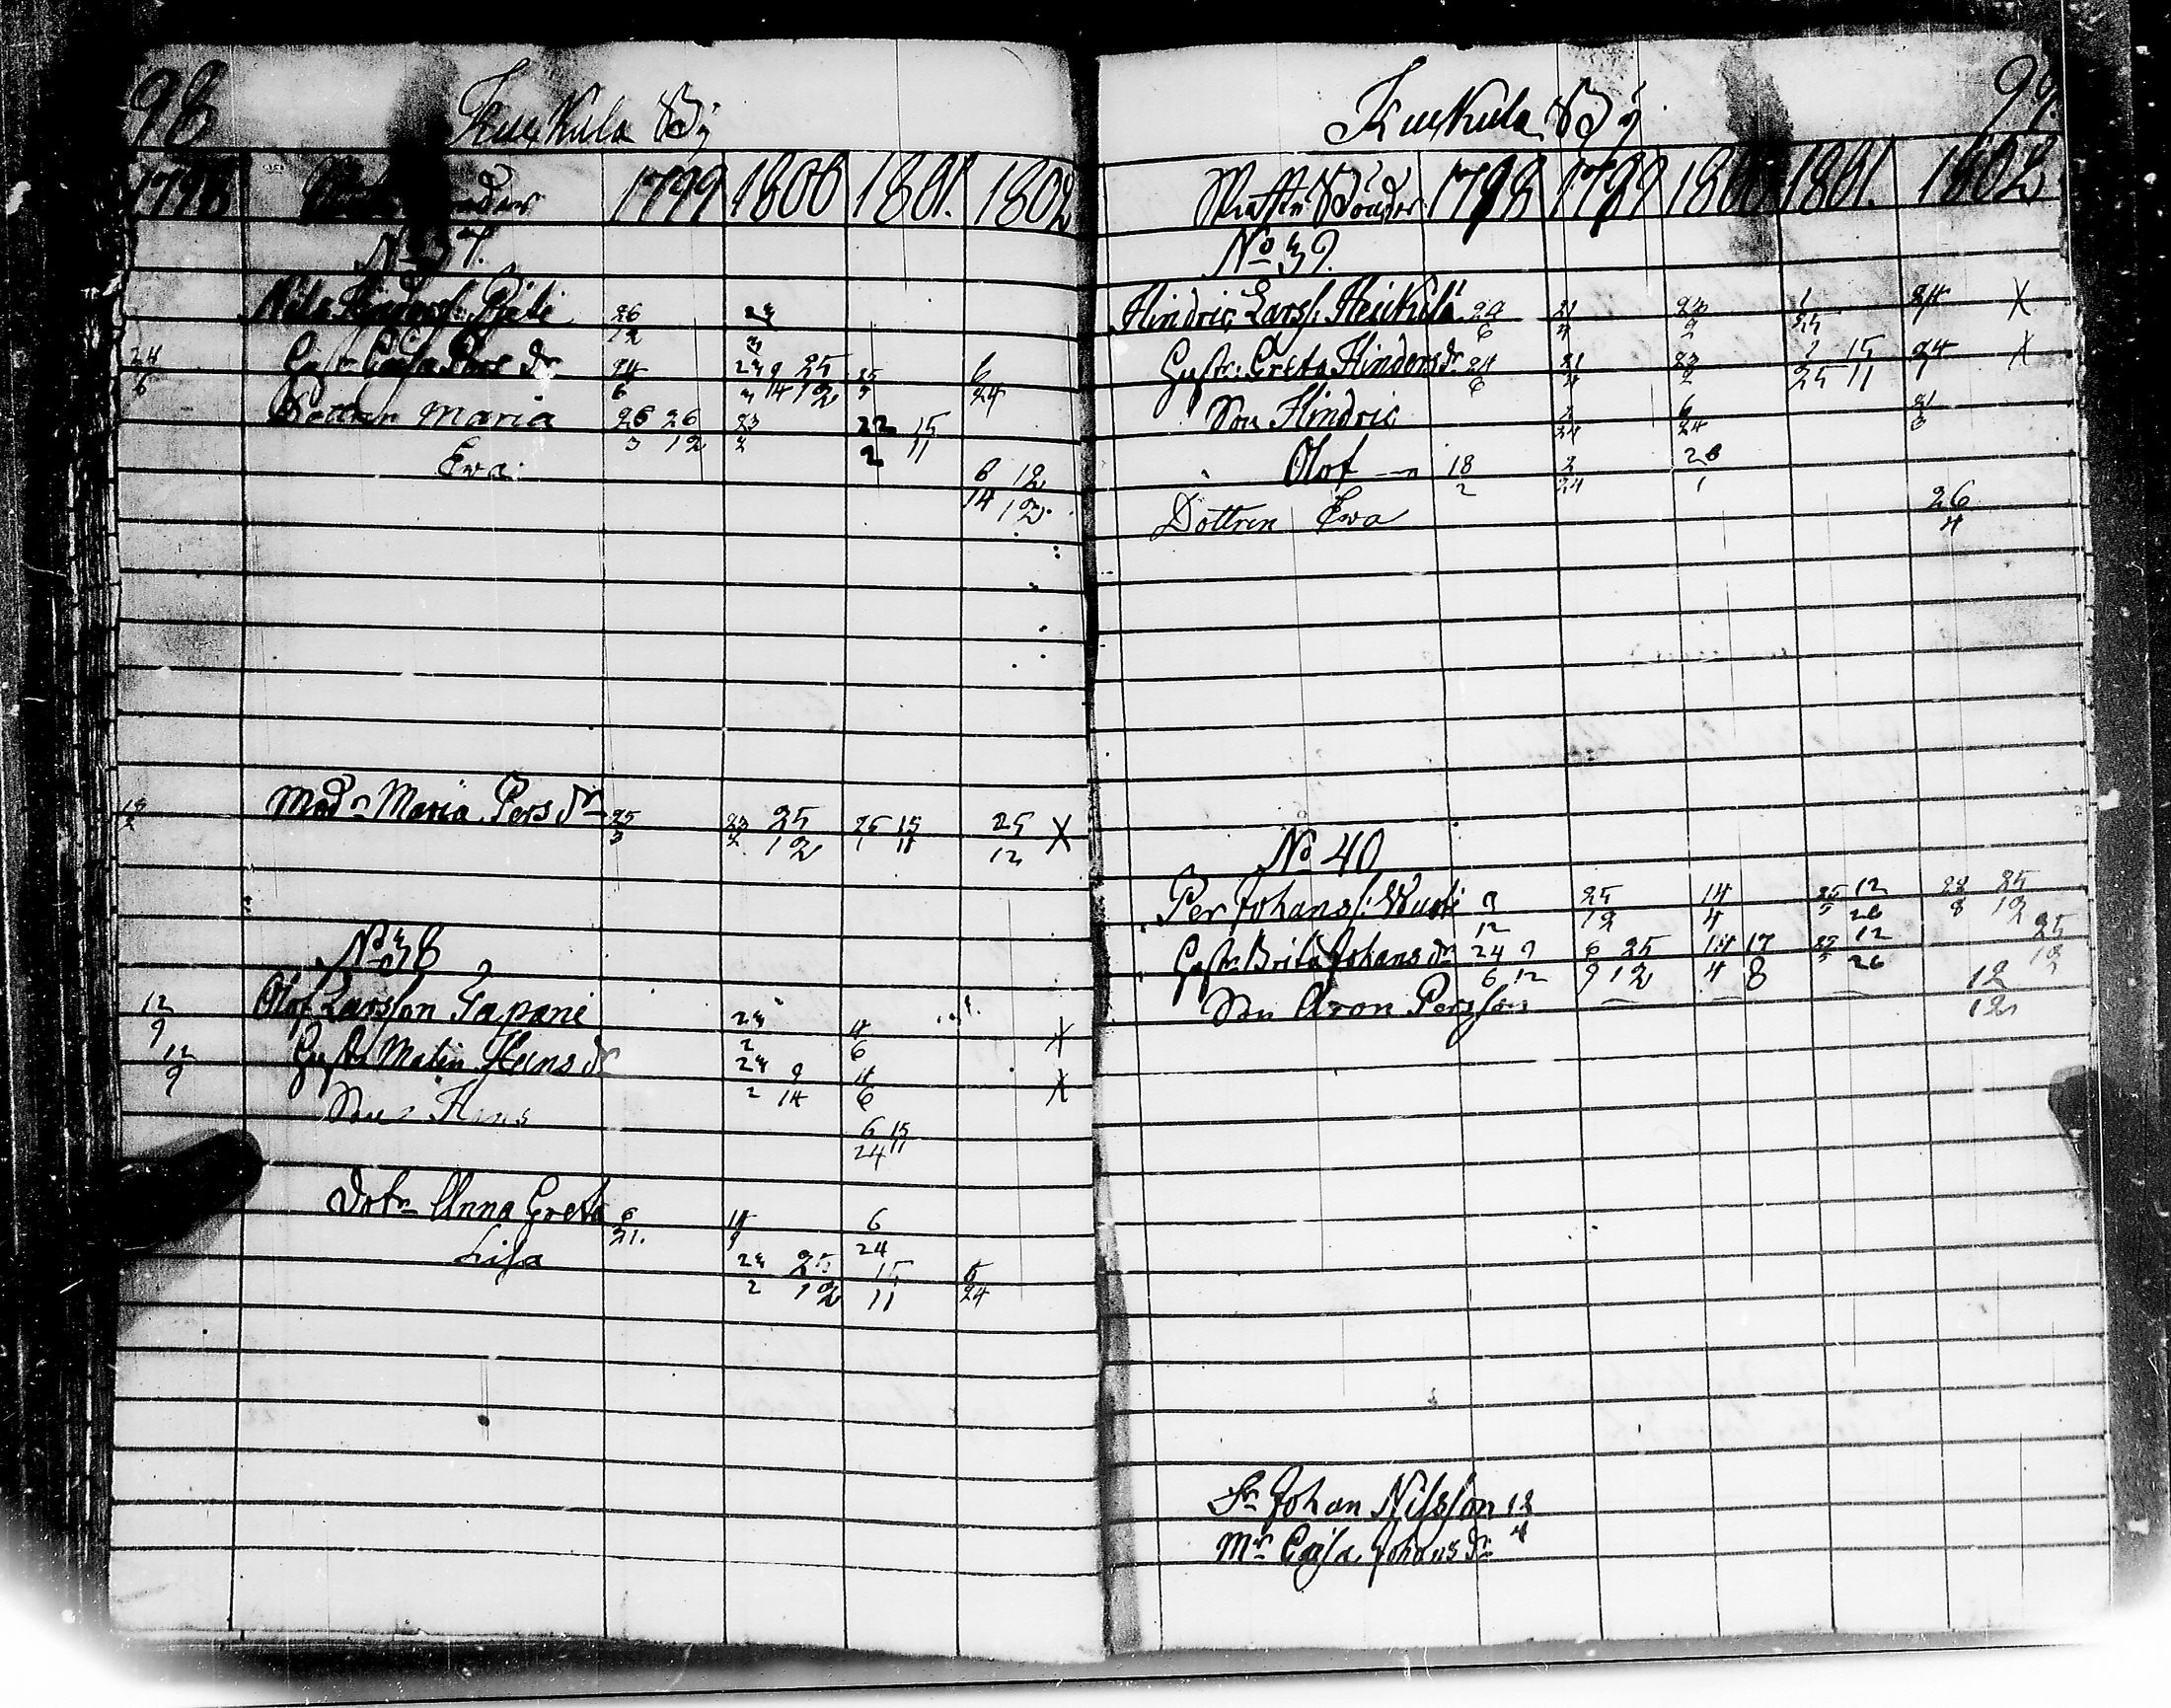 98
Kuckula By
1798 1799 1800 1801. 1802
No 37.
Nils Hinderss: Pieti 26/12 23/3
24/6 Hustr Caisa Pers dr 24/6 23/3 9/14 25/12 25/3 6/24
Dottren Maria 25/3 26/12 23/2 22/2 15/11
Ewa 6/14 12/12
18/2 Modr Maria Pers dr 25/3 23/2 25/12 25/1 15/11 25/12 X
No 38
12/9 Olof Larsson Tapani 23/2 4/6 X
12/9 Hustr Malin Hans dr 23/2 9/14 4/6 X
Son Hans 6/24 15/11
Dotr Anna Greta 6/21. 14/9 6/24
Lisa 23/2 25/12 15/11 6/24
99.
Kuckula By
Skatte Bönder 1798 1799 1800 1801. 1802
No 39.
Hindric Larss. Heickilä 24/6 21/4 23/2 1/25 24/1 X
Hustr: Greta Hinders dr 24/6 21/4 23/2 1/25 15/11 24/1 X
Son Hindric 2/24 6/24 21/3
Olof 18/2 2/24 26/1
Dottren Ewa 26/4
No 40
Per Johanss: Wuoti 9/12 25/12 14/4 25/5 12/26 28/8 25/12
Hustr Brita Johans dr 24/6 9/12 6/9 25/12 14/4 17/8 25/5 12/26 25/12
Son Aron Persson 12/12
Sn Johan Nilsson 12/4
Mr Cajsa Johans dr